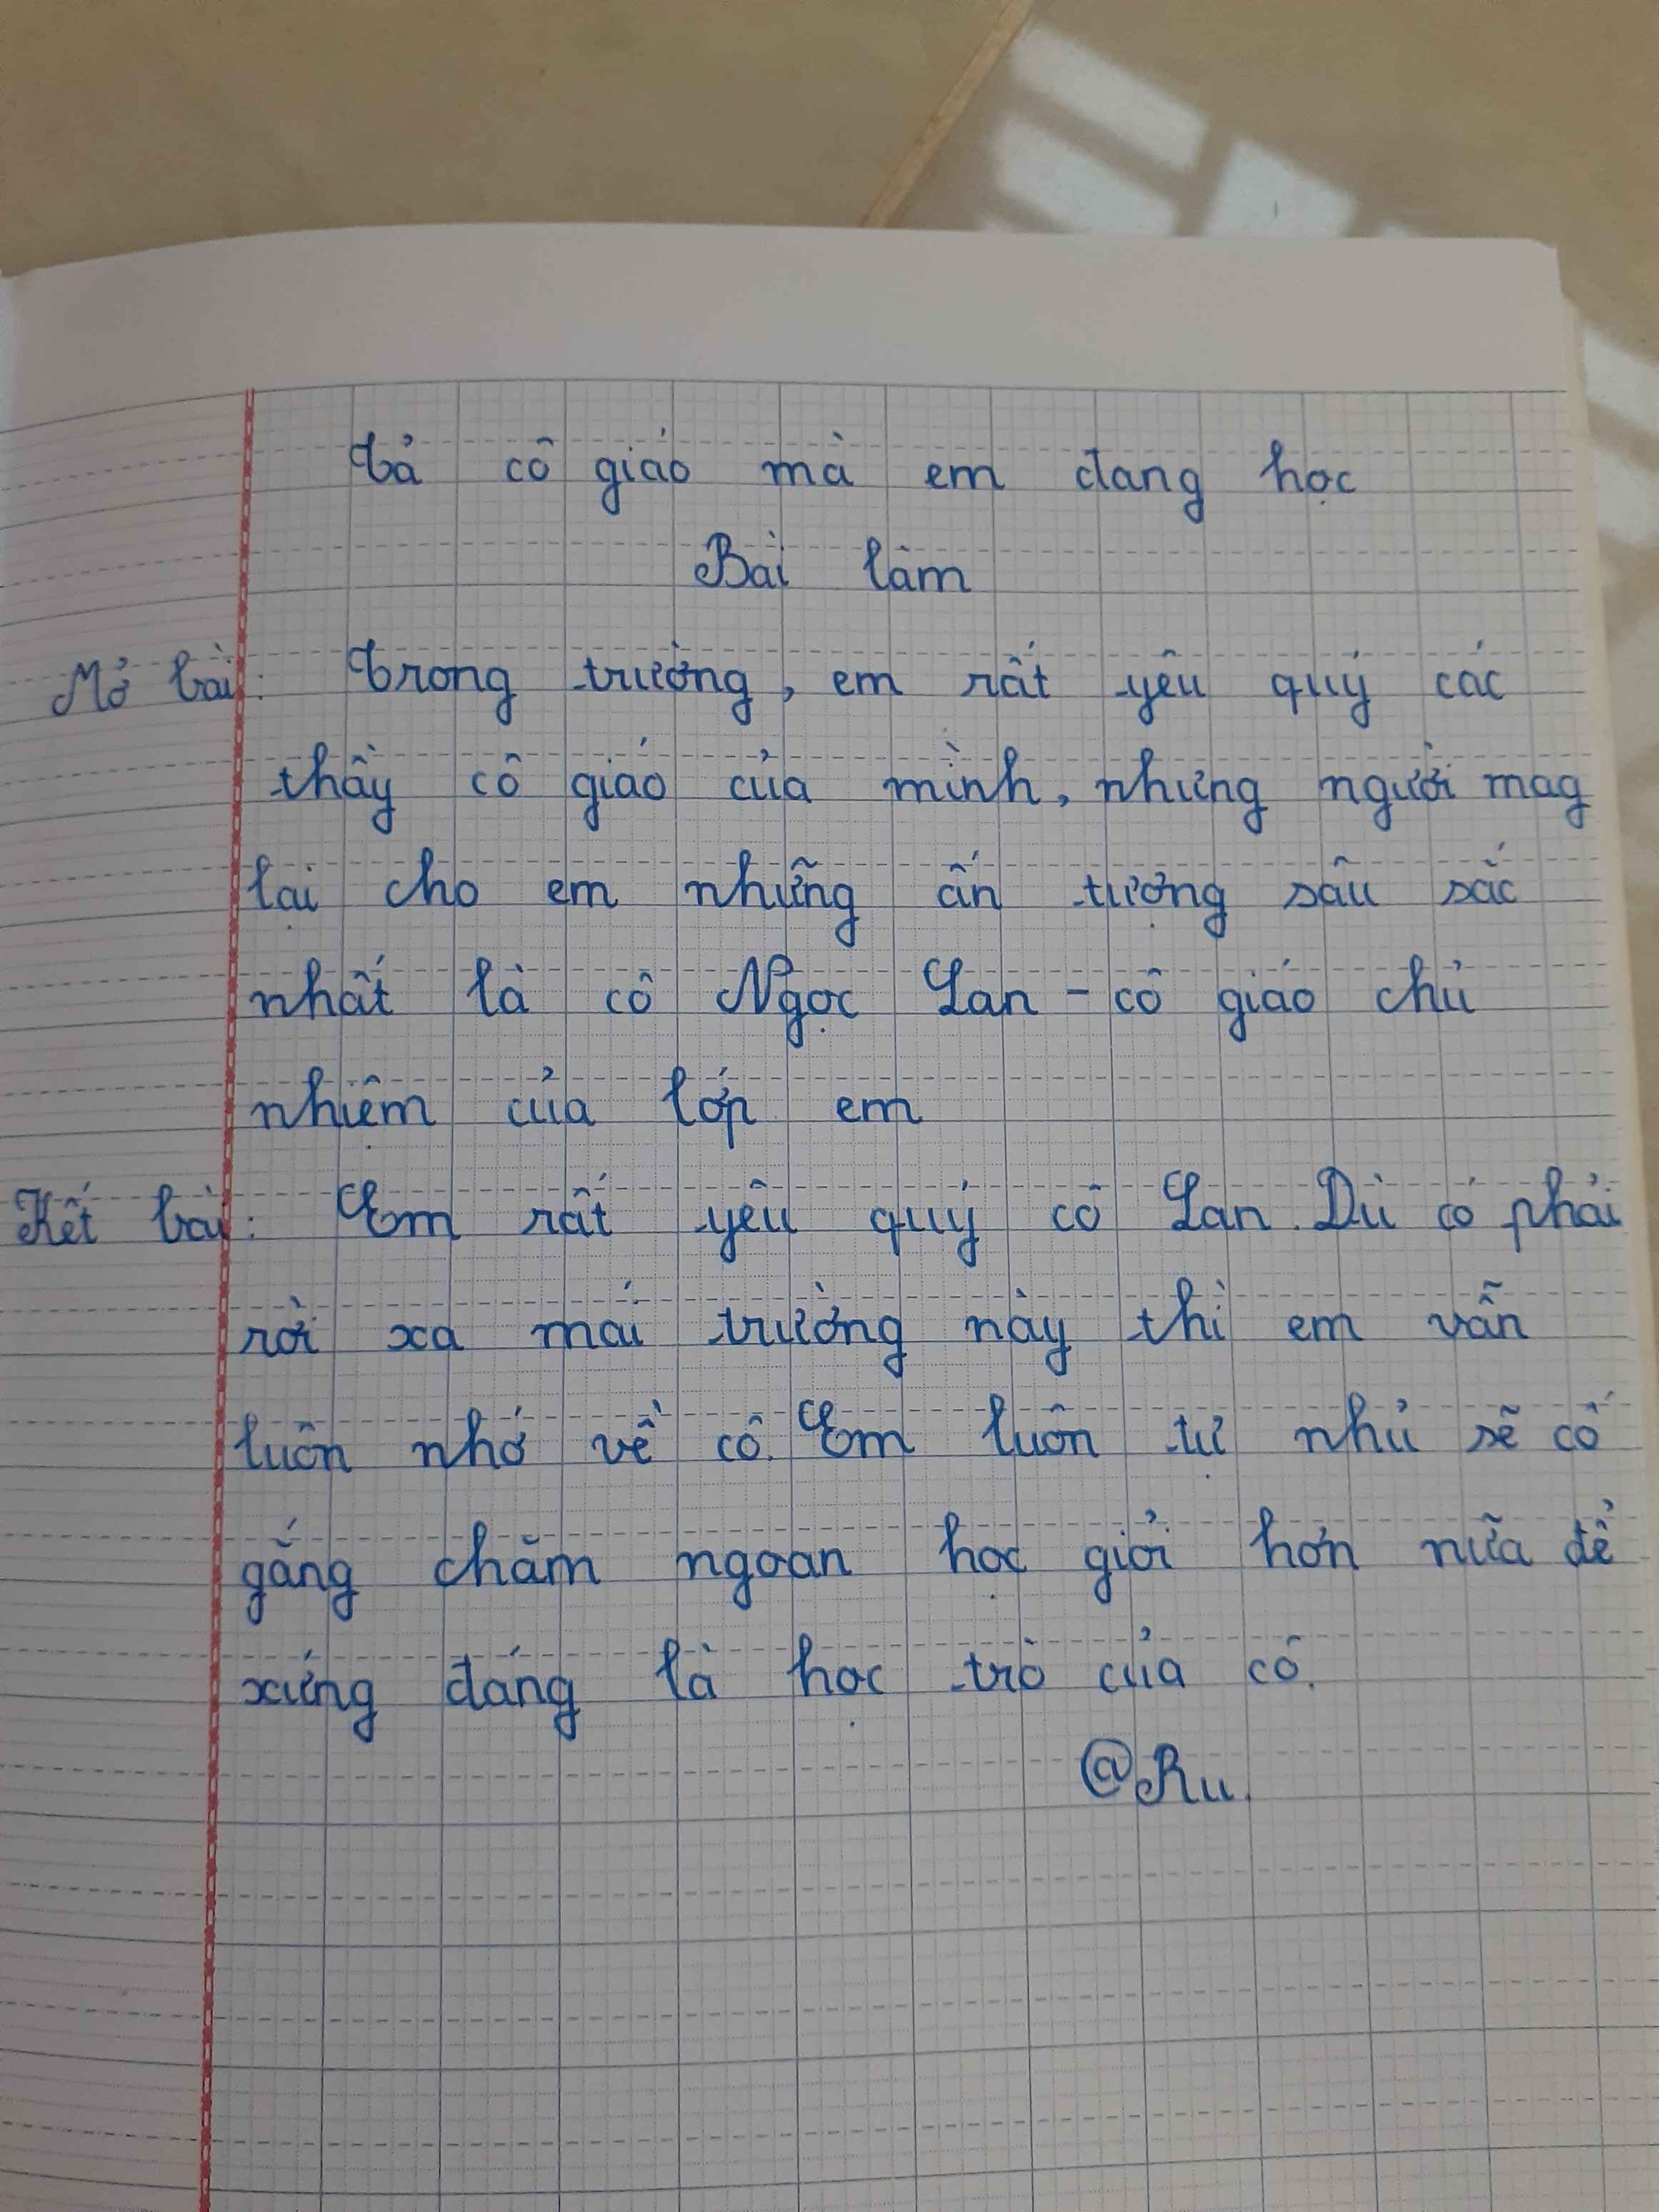 Tả cô giáo mà em đang học
Bài làm
Mở bài: Trong trường, em rất yêu quý các
thầy cô giáo của mình, nhưng người mag
lại cho em những ấn tượng sâu sắc
nhất là cô Ngọc Lan - cô giáo chủ
nhiệm của lớp em
Kết bài: Em rất yêu quý cô Lan. Dù có phải
rời xa mái trường này thì em vẫn
luôn nhớ về cô. Em luôn tự nhủ sẽ cố
gắng chăm ngoan học giỏi hơn nữa để
xứng đáng là học trò của cô.
@Ru.